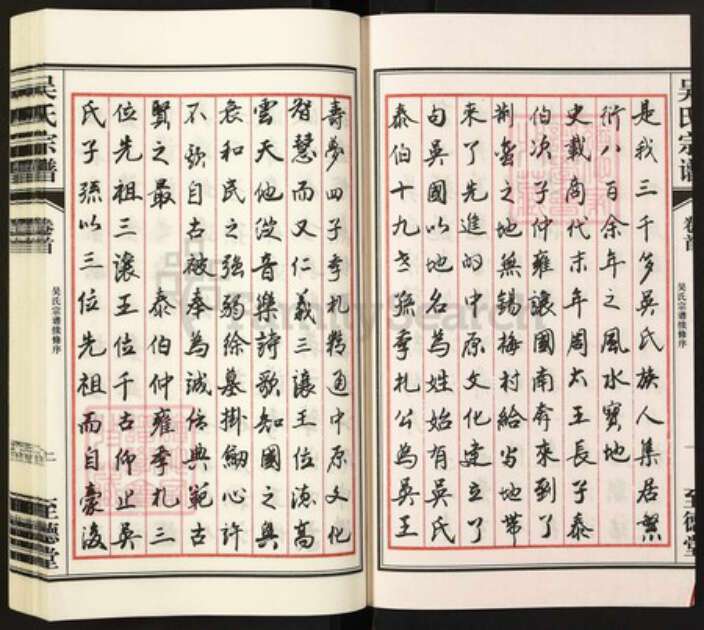 吴氏宗谱
卷首
吴氏宗谱续修序
一
至德堂
是我三千多吴氏族人集居繁
衍八百余年之風水寶地
史載商代末年周太王長子泰
伯次子仲雍讓國南奔來到了
荆蛮之地無锡梅村給当地帶
来了先進的中原文化建立了
句吴國以地名為姓始有吴氏
泰伯十九世孫季札公為吴王
壽夢四子季札精通中原文化
智慧而又仁義三讓王位德高
雲天他從音樂詩歌知國之興
衰和民之强弱徐墓掛劍心許
不欺自古被奉為誠信典範古
賢之最 泰伯仲雍季札三
位先祖三讓王位千古仰止吴
氏子孫以三位先祖而自豪後
吴氏宗谱
卷首
吴氏宗谱续修序
二
至德堂
FamilySearch